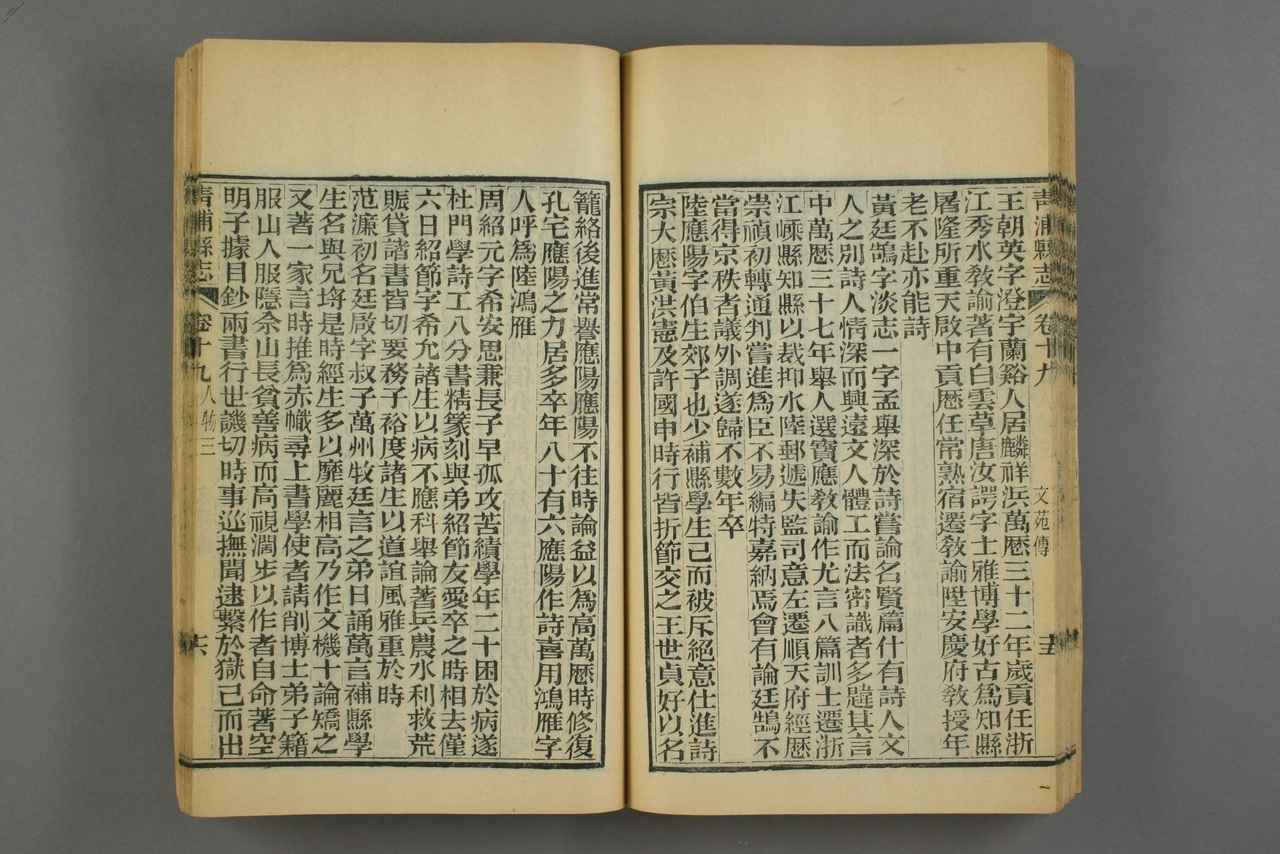 青浦縣志 卷十九 文苑傳 五
王朝英字澄宇蘭谿人居麟祥浜萬歷三十二年歲貢任浙
江秀水教諭著有白雲草唐汝諤字士雅博學好古為知縣
屠隆所重天啟中貢歷任常熟宿遷教諭陞安慶府教授年
老不赴亦能詩
黃廷鵠字淡志一字孟舉深於詩嘗論名賢篇什有詩人文
人之別詩人情深而興遠文人體工而法密識者多韙其言
中萬歷三十七年舉人選寶應教諭作尤言八篇訓士遷浙
江嵊縣知縣以裁抑水陸郵遞失監司意左遷順天府經歷
崇禎初轉通判嘗進為臣不易編特嘉納焉會有論廷鵠不
當得京秩者議外調遂歸不數年卒
陸應陽字伯生郊子也少補縣學生已而被斥絕意仕進詩
宗大歷黃洪憲及許國申時行皆折節交之王世貞好以名
籠絡後進常譽應陽應陽不往時論益以為高萬歷時修復
孔宅應陽之力居多卒年八十有六應陽作詩喜用鴻雁字
人呼為陸鴻雁
周紹元字希安思兼長子早孤攻苦績學年二十困於病遂
杜門學詩工八分書精篆刻與弟紹節友愛卒之時相去僅
六日紹節字希允諸生以病不應科舉論著兵農水利救荒
賑貸諸書皆切要務子裕度諸生以道誼風雅重於時
范濂初名廷啟字叔子萬州牧廷言之弟日誦萬言補縣學
生名與兄埒是時經生多以靡麗相高乃作文機十論矯之
又著一家言時推為赤幟尋上書學使者請削博士弟子籍
服山人服隱佘山長貧善病而高視濶步以作者自命著空
明子據目鈔兩書行世譏切時事巡撫聞逮繫於獄已而出
青浦縣志 卷十九 人物三 六